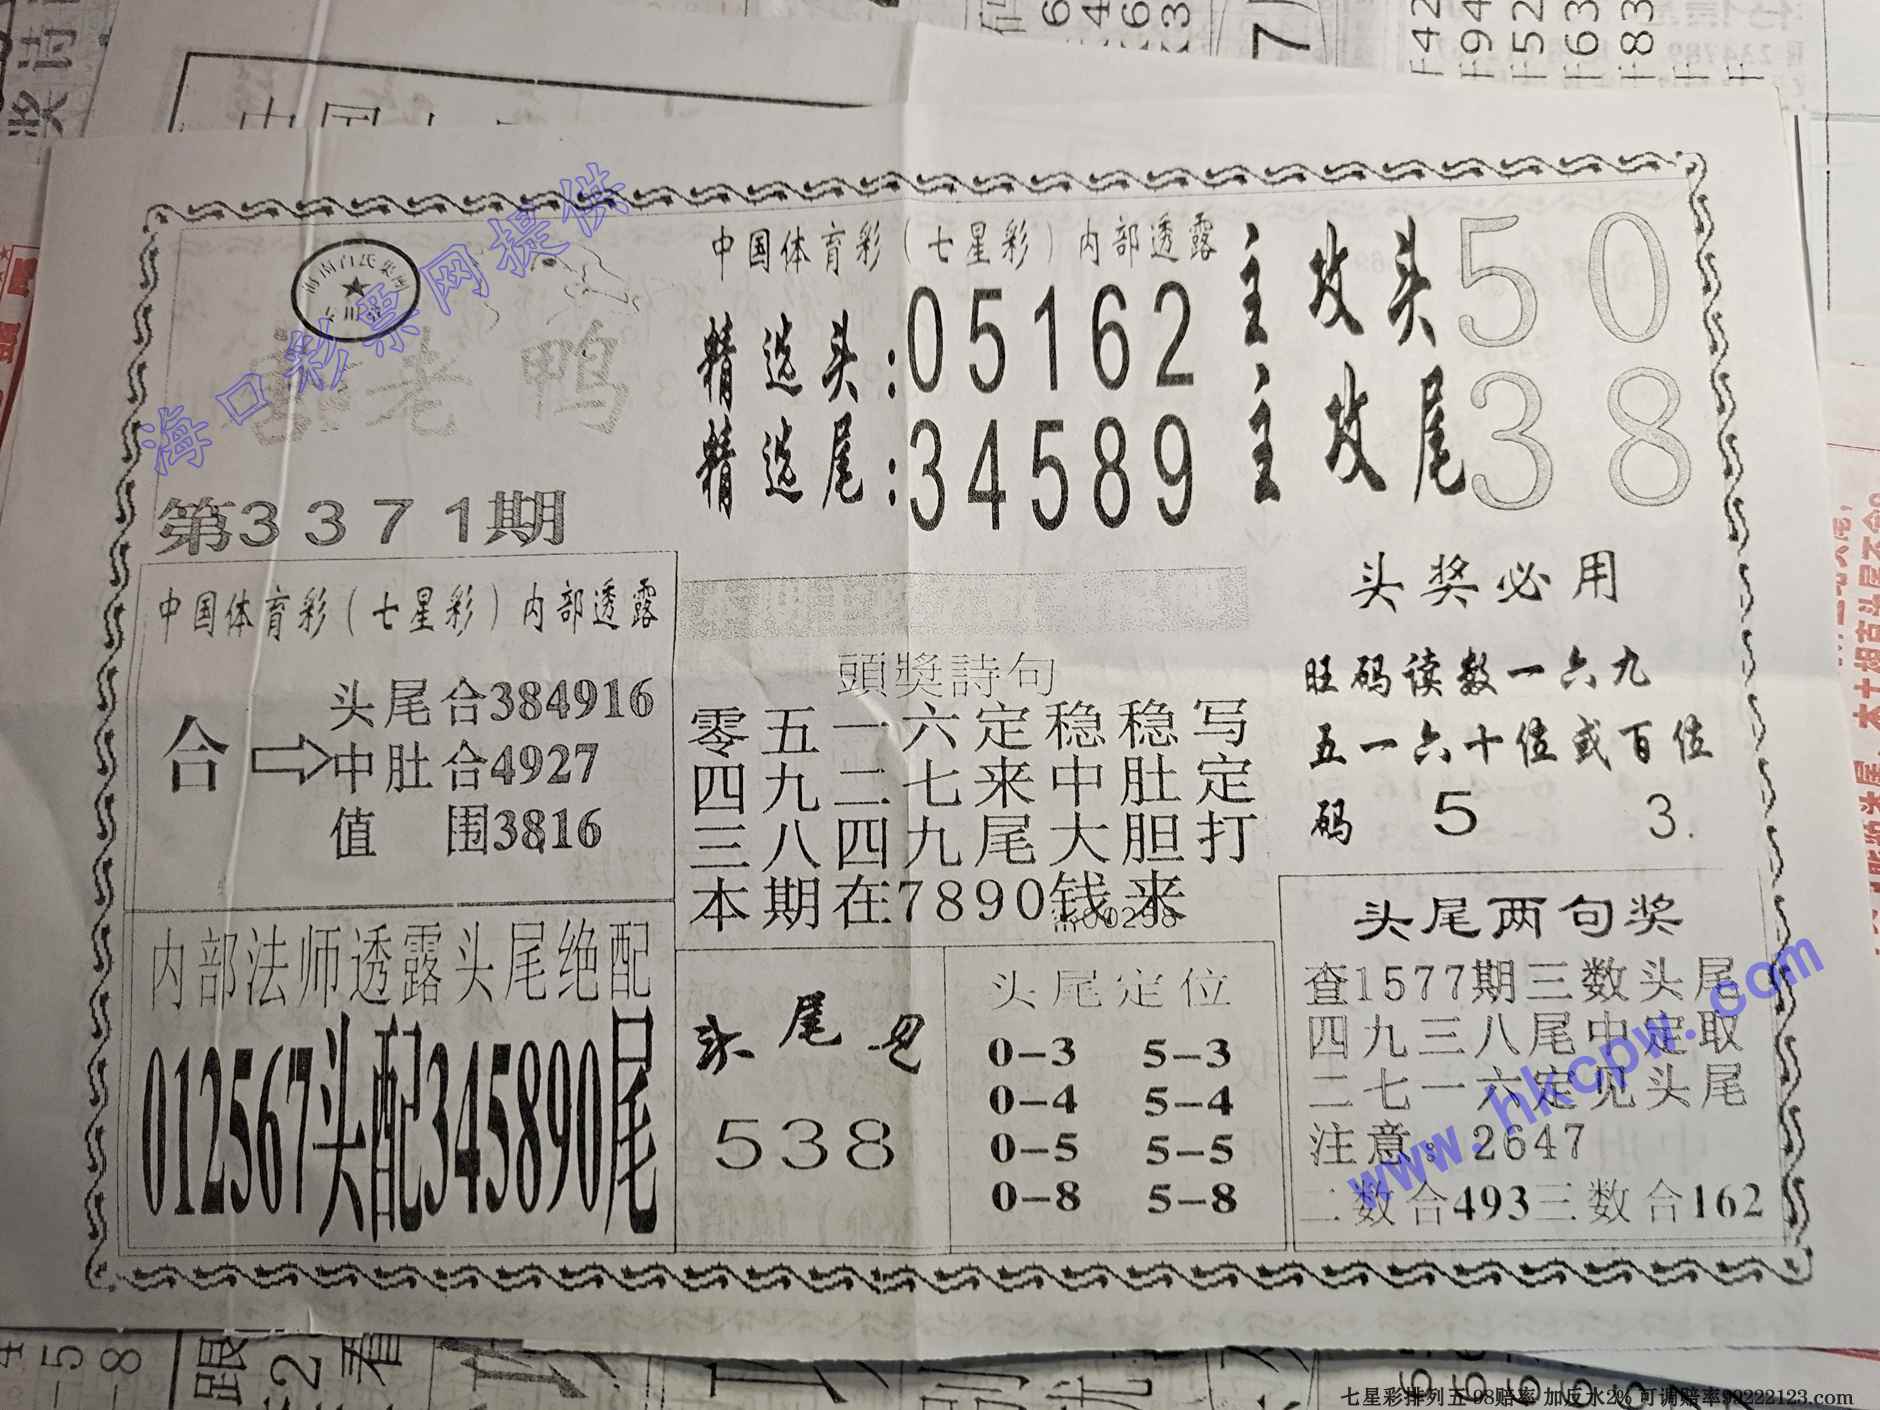 海口彩票网提供
老鸭
第3371期
中国体育彩(七星彩)内部透露
精选头:05162
精选尾:34589
主攻头50
主攻尾38
中国体育彩(七星彩)内部透露
合
头尾合384916
中肚合4927
值 围3816
頭獎詩句
零五一六定稳稳写
四九二七来中肚定
三八四九尾大胆打
本期在7890钱来
头奖必用
旺码读数一六九
五一六十位或百位
码 5 3.
内部法师透露头尾绝配
012567头配345890尾
头尾见
538
头尾定位
0-3 5-3
0-4 5-4
0-5 5-5
0-8 5-8
头尾两句奖
查1577期三数头尾
四九三八尾中定取
二七一六定见头尾
注意:2647
二数合493三数合162
www.hkcpw.com
七星彩排列五 98赔率 加反水2% 可调赔率99222123.com